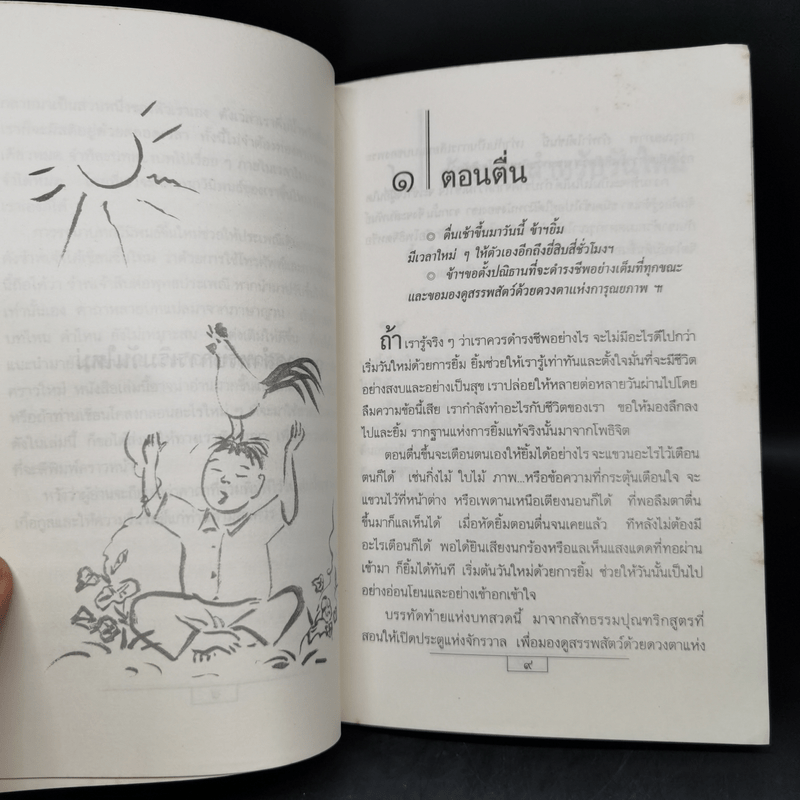 ๑ ตอนตื่น
ตื่นเช้าขึ้นมาวันนี้ ข้าฯยิ้ม
มีเวลาใหม่ ๆ ให้ตัวเองอีกถึงยี่สิบสี่ชั่วโมงฯ
ข้าฯขอตั้งปณิธานที่จะดำรงชีพอย่างเต็มที่ทุกขณะ
และขอมองดูสรรพสัตว์ด้วยดวงตาแห่งการุณยภาพ ฯ
ถ้า เรารู้จริง ๆ ว่าเราควรดำรงชีพอย่างไร จะไม่มีอะไรดีไปกว่า
เริ่มวันใหม่ด้วยการยิ้ม ยิ้มช่วยให้เรารู้เท่าทันและตั้งใจมั่นที่จะมีชีวิต
อย่างสงบและอย่างเป็นสุข เราปล่อยให้หลายต่อหลายวันผ่านไปโดย
ลืมความข้อนี้เสีย เรากำลังทำอะไรกับชีวิตของเรา ขอให้มองลึกลง
ไปและยิ้ม รากฐานแห่งการยิ้มแท้จริงนั้นมาจากโพธิจิต
ตอนตื่นขึ้นจะเตือนตนเองให้ยิ้มได้อย่างไร จะแขวนอะไรไว้เตือน
ตนก็ได้ เช่นกิ่งไม้ ใบไม้ ภาพ...หรือข้อความที่กระตุ้นเตือนใจ จะ
แขวนไว้ที่หน้าต่าง หรือเพดานเหนือเตียงนอนก็ได้ ที่พอลืมตาตื่น
ขึ้นมาก็แลเห็นได้ เมื่อหัดยิ้มตอนตื่นจนเคยแล้ว ทีหลังไม่ต้องมี
อะไรเตือนก็ได้ พอได้ยินเสียงนกร้องหรือแลเห็นแสงแดดที่ทอผ่าน
เข้ามา ก็ยิ้มได้ทันที เริ่มต้นวันใหม่ด้วยการยิ้ม ช่วยให้วันนั้นเป็นไป
อย่างอ่อนโยนและอย่างเข้าอกเข้าใจ
บรรทัดท้ายแห่งบทสวดนี้ มาจากสัทธรรมปุณฑริกสูตรที่
สอนให้เปิดประตูแห่งจักรวาล เพื่อมองดูสรรพสัตว์ด้วยดวงตาแห่ง
๙